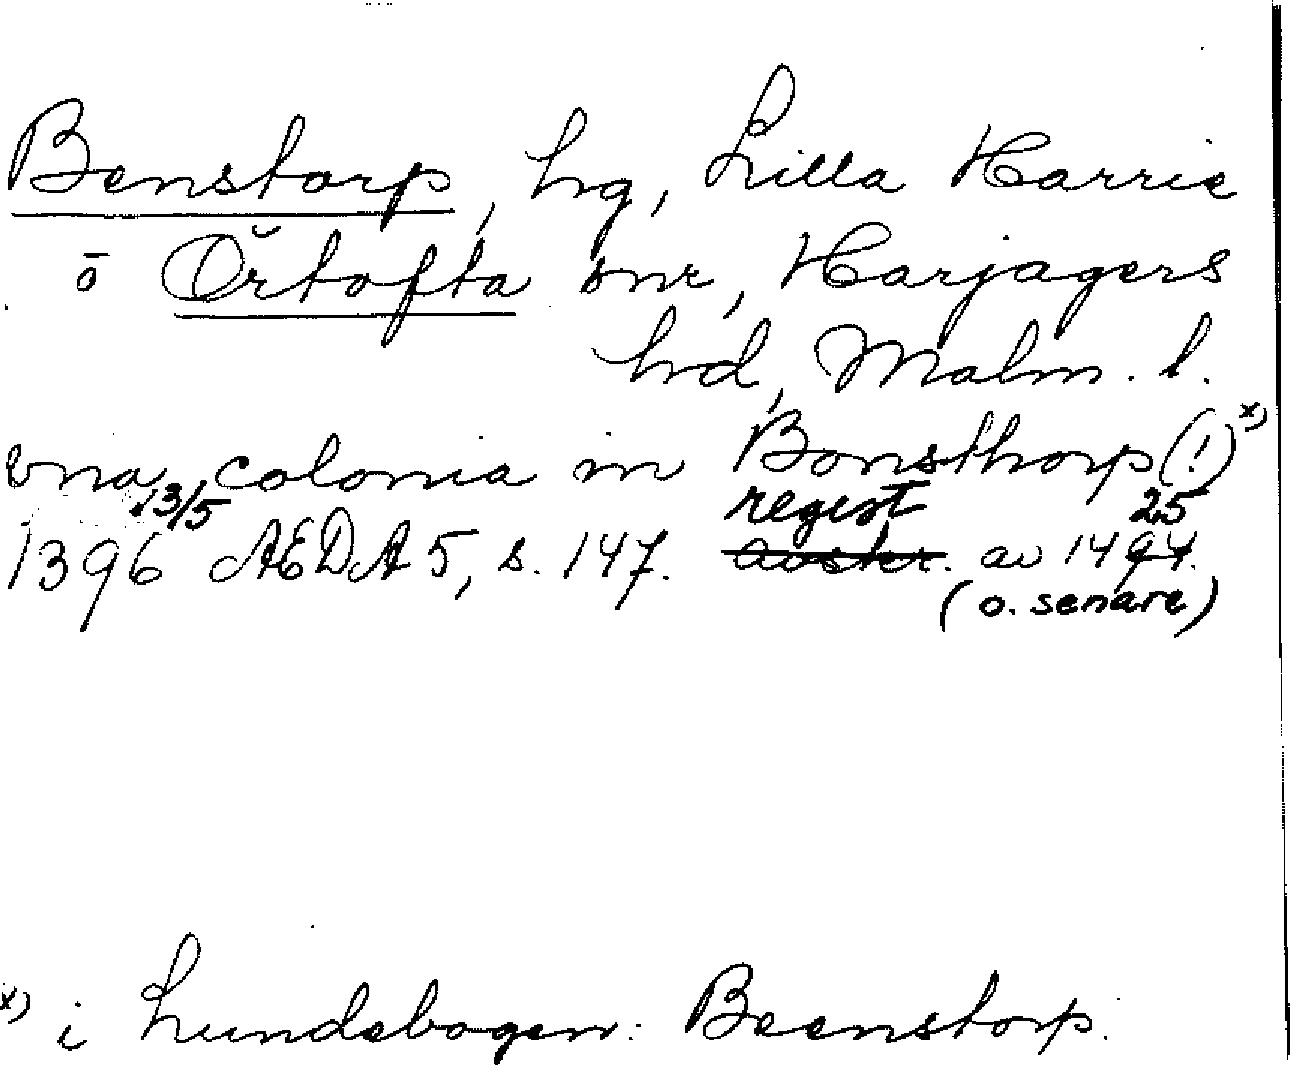 Benstorp, hg, Lilla Harrie
o Örtofta snr, Harjagers
hd, Malm. l.
vna colonia in Bonsthorp (!) x)
13/5 regest 25
1396 AEDA 5, s. 147. avskr. av 1494.
(o. senare)
x) i Lundebogen: Beenstorp.